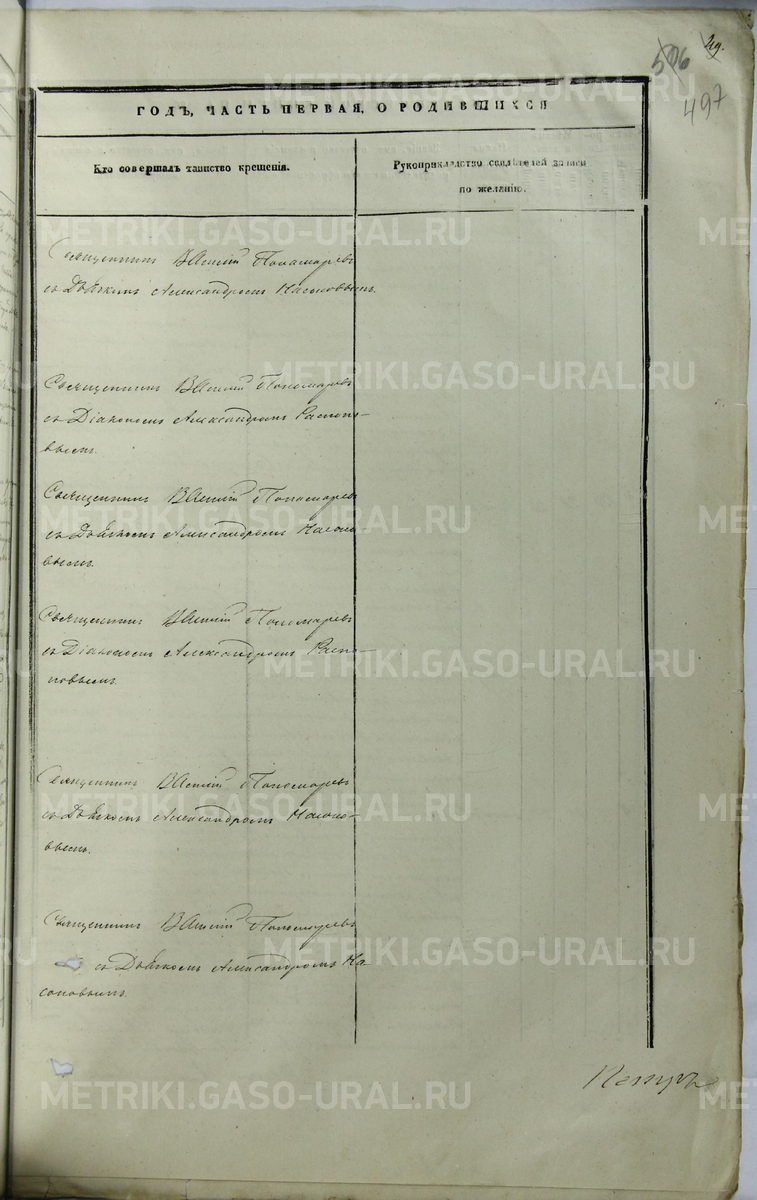 29.
506
497
ГОДЪ, ЧАСТЬ ПЕРВАЯ, О РОДИВШИХСЯ
Кто совершалъ таинство крещенія.
Рукоприкладство свидѣтелей записи
по желанію.
Священникъ Василій Пономаревъ
съ Дьячкомъ Александромъ Насоновымъ.
Священникъ Василій Пономаревъ
съ Діакономъ Александромъ Распоповымъ.
Священникъ Василій Пономаревъ
съ Дьячкомъ Александромъ Насоно-
вымъ.
Священникъ Василій Пономаревъ
съ Діакономъ Александромъ Распо-
повымъ.
Священникъ Василій Пономаревъ
съ Дьячкомъ Александромъ Насоно-
вымъ.
Священникъ Василій Пономаревъ
съ Дьячкомъ Александромъ На-
соновымъ.
METRIKI.GASO-URAL.RU